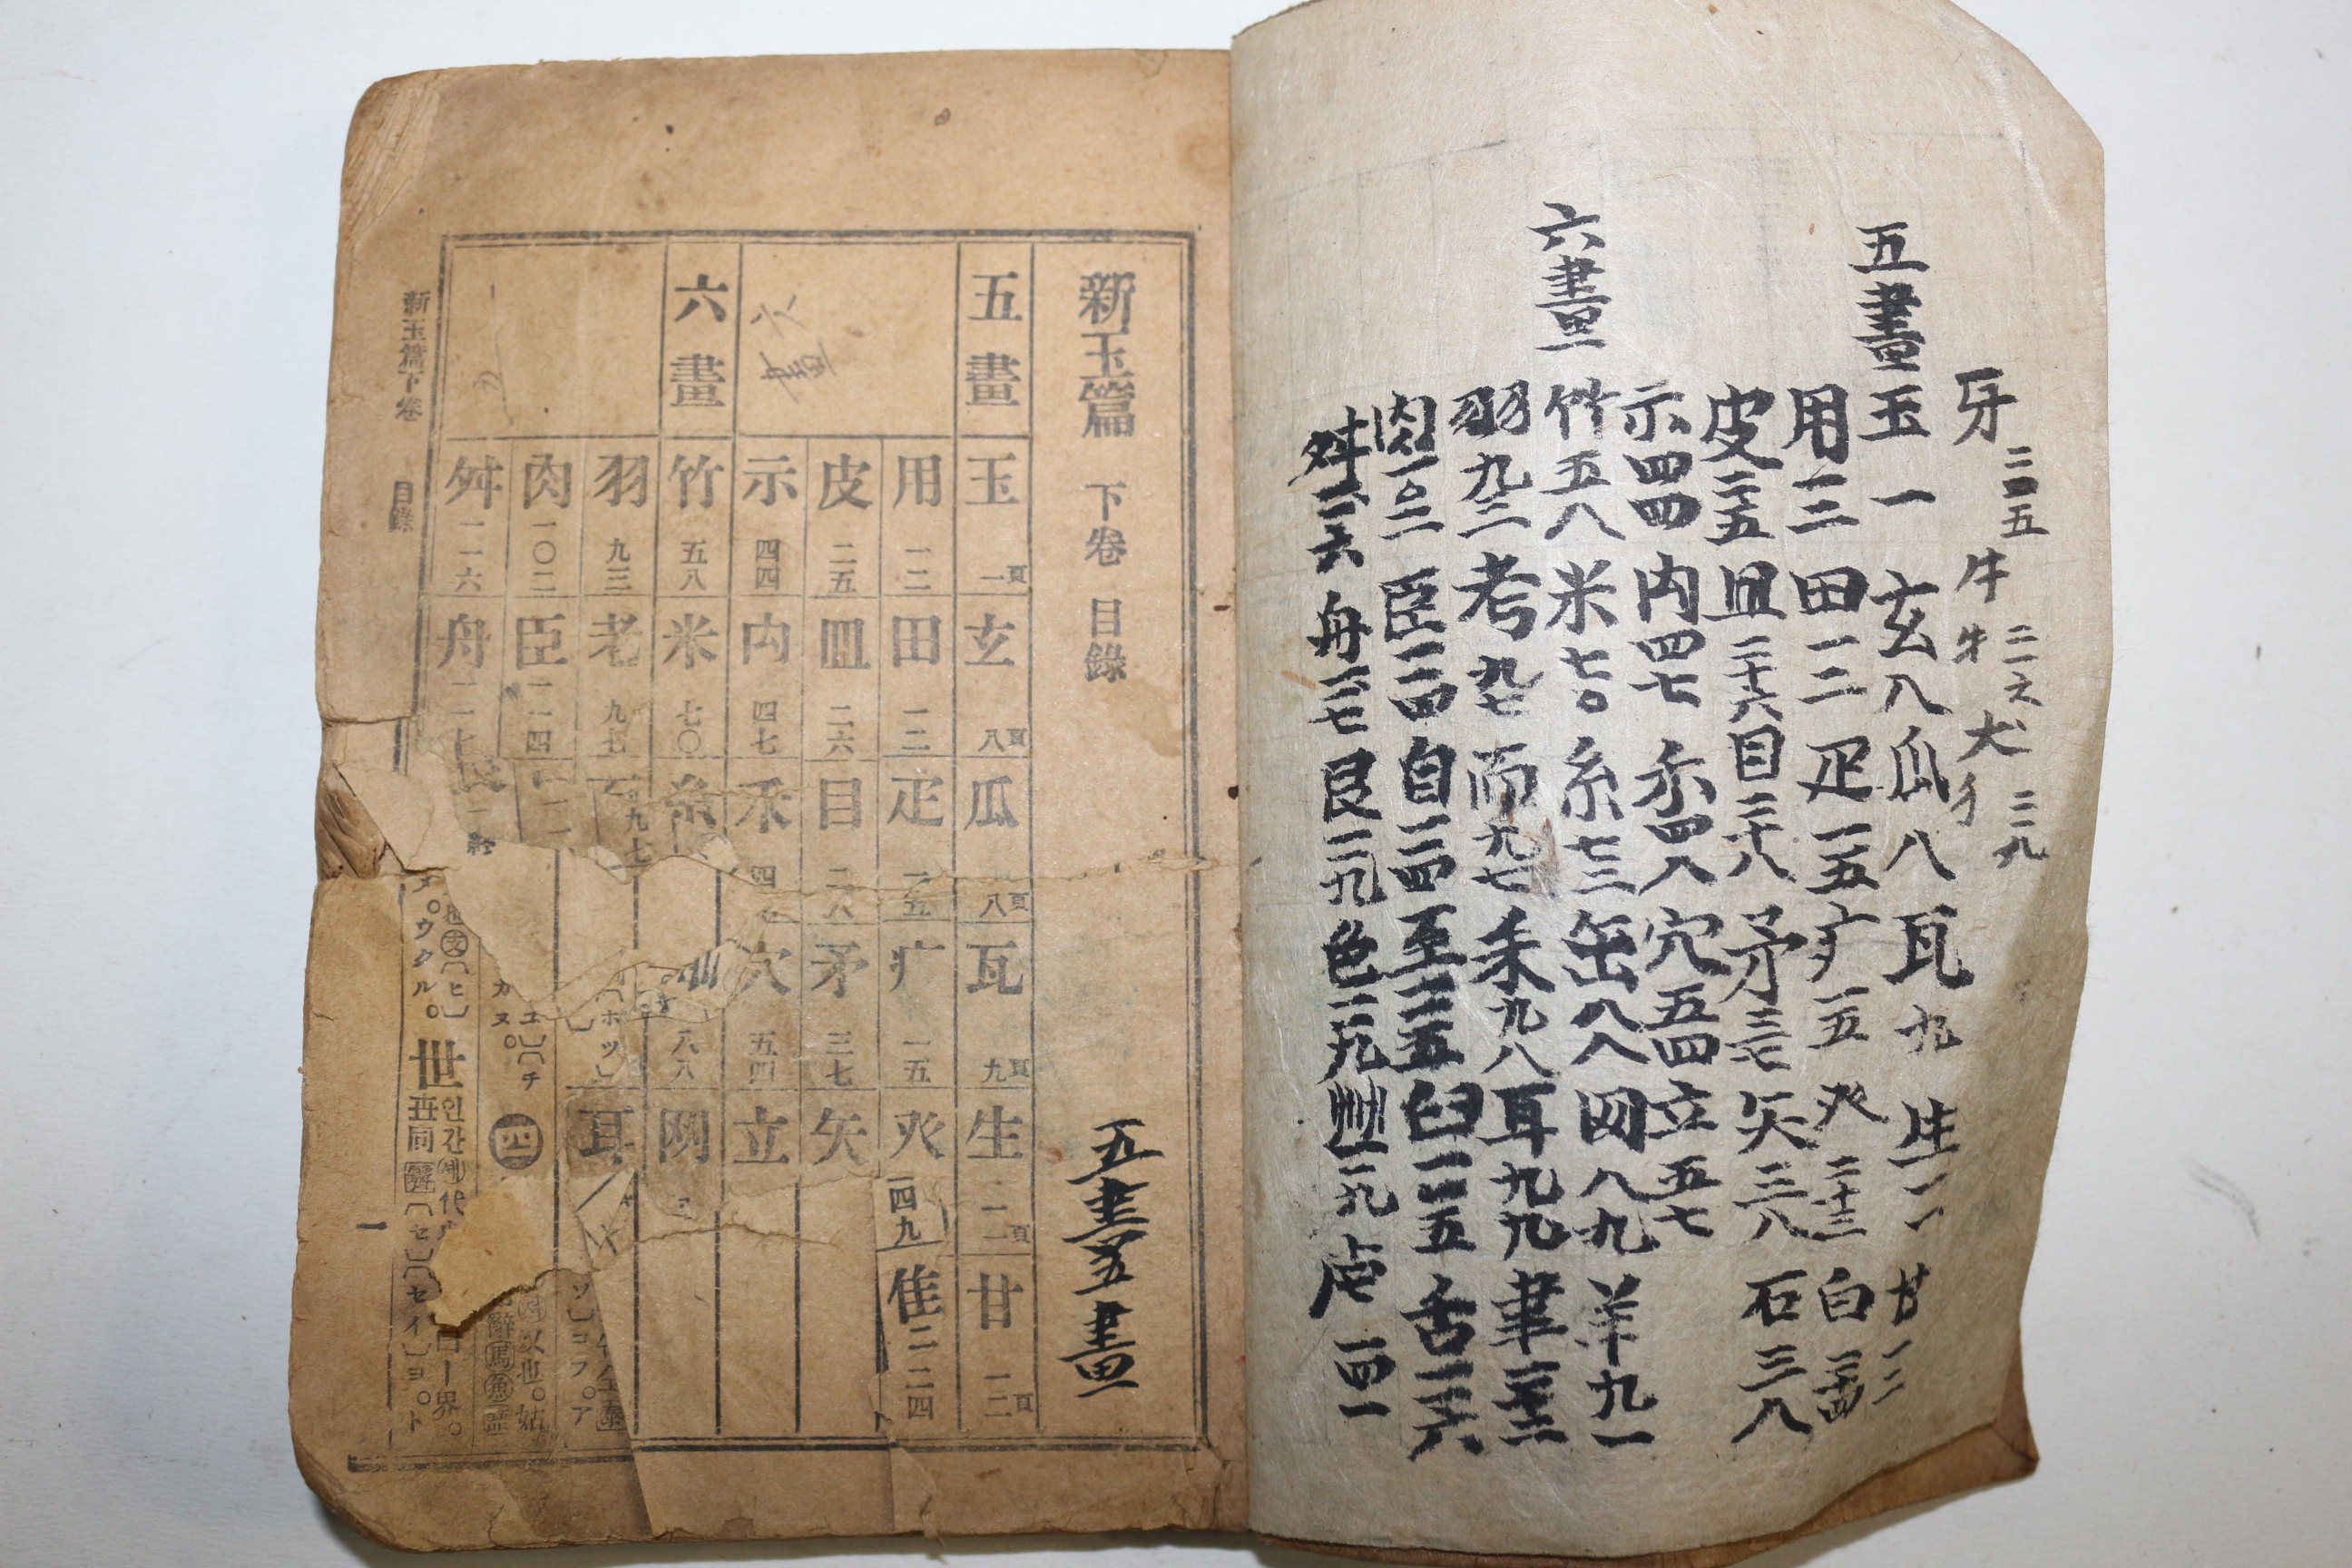 牙 二四五 牛 牜 二六 犬 犭 二二九
五畫 玉 一 玄 八 瓜 八 瓦 九 生 一一 甘 一二
用 一二 田 一二 疋 一五 疒 一五 癶 二十三 白 二十四
皮 二五 皿 二十六 目 二十八 矛 三七 矢 三八 石 三八
示 四四 禸 四七 禾 四八 穴 五四 立 五七
六畫 竹 五八 米 七〇 糸 七三 缶 八八 网 八九 羊 九一
羽 九三 考 九七 而 九七 耒 九八 耳 九九 聿
肉 一〇二 臣 一一四 自 一一四 至 一一五 臼 一一五 舌 一一六
舛 一一六 舟 一一七 艮 一一九 色 一一九 艸 一一九 虍 一四一
新玉篇 下卷 目錄
五畫五畫
五畫 玉 一頁 玄 八頁 瓜 八頁 瓦 九頁 生 一一頁 甘 一二頁
用 一二 田 一二 疋 一五 疒 一五 癶 一四九 隹 二二四
皮 二五 皿 二六 目 二八 矛 三七 矢
六畫
示 四四 禸 四七 禾 四 穴 五四 立
六畫 竹 五八 米 七〇 糸 八八 网
羽 九三 老 九七 九七 耳
肉 一〇二 臣 一一四
舛 一一六 舟 一一七
新玉篇下卷 目錄
一
世 인간세 代
丗同
四